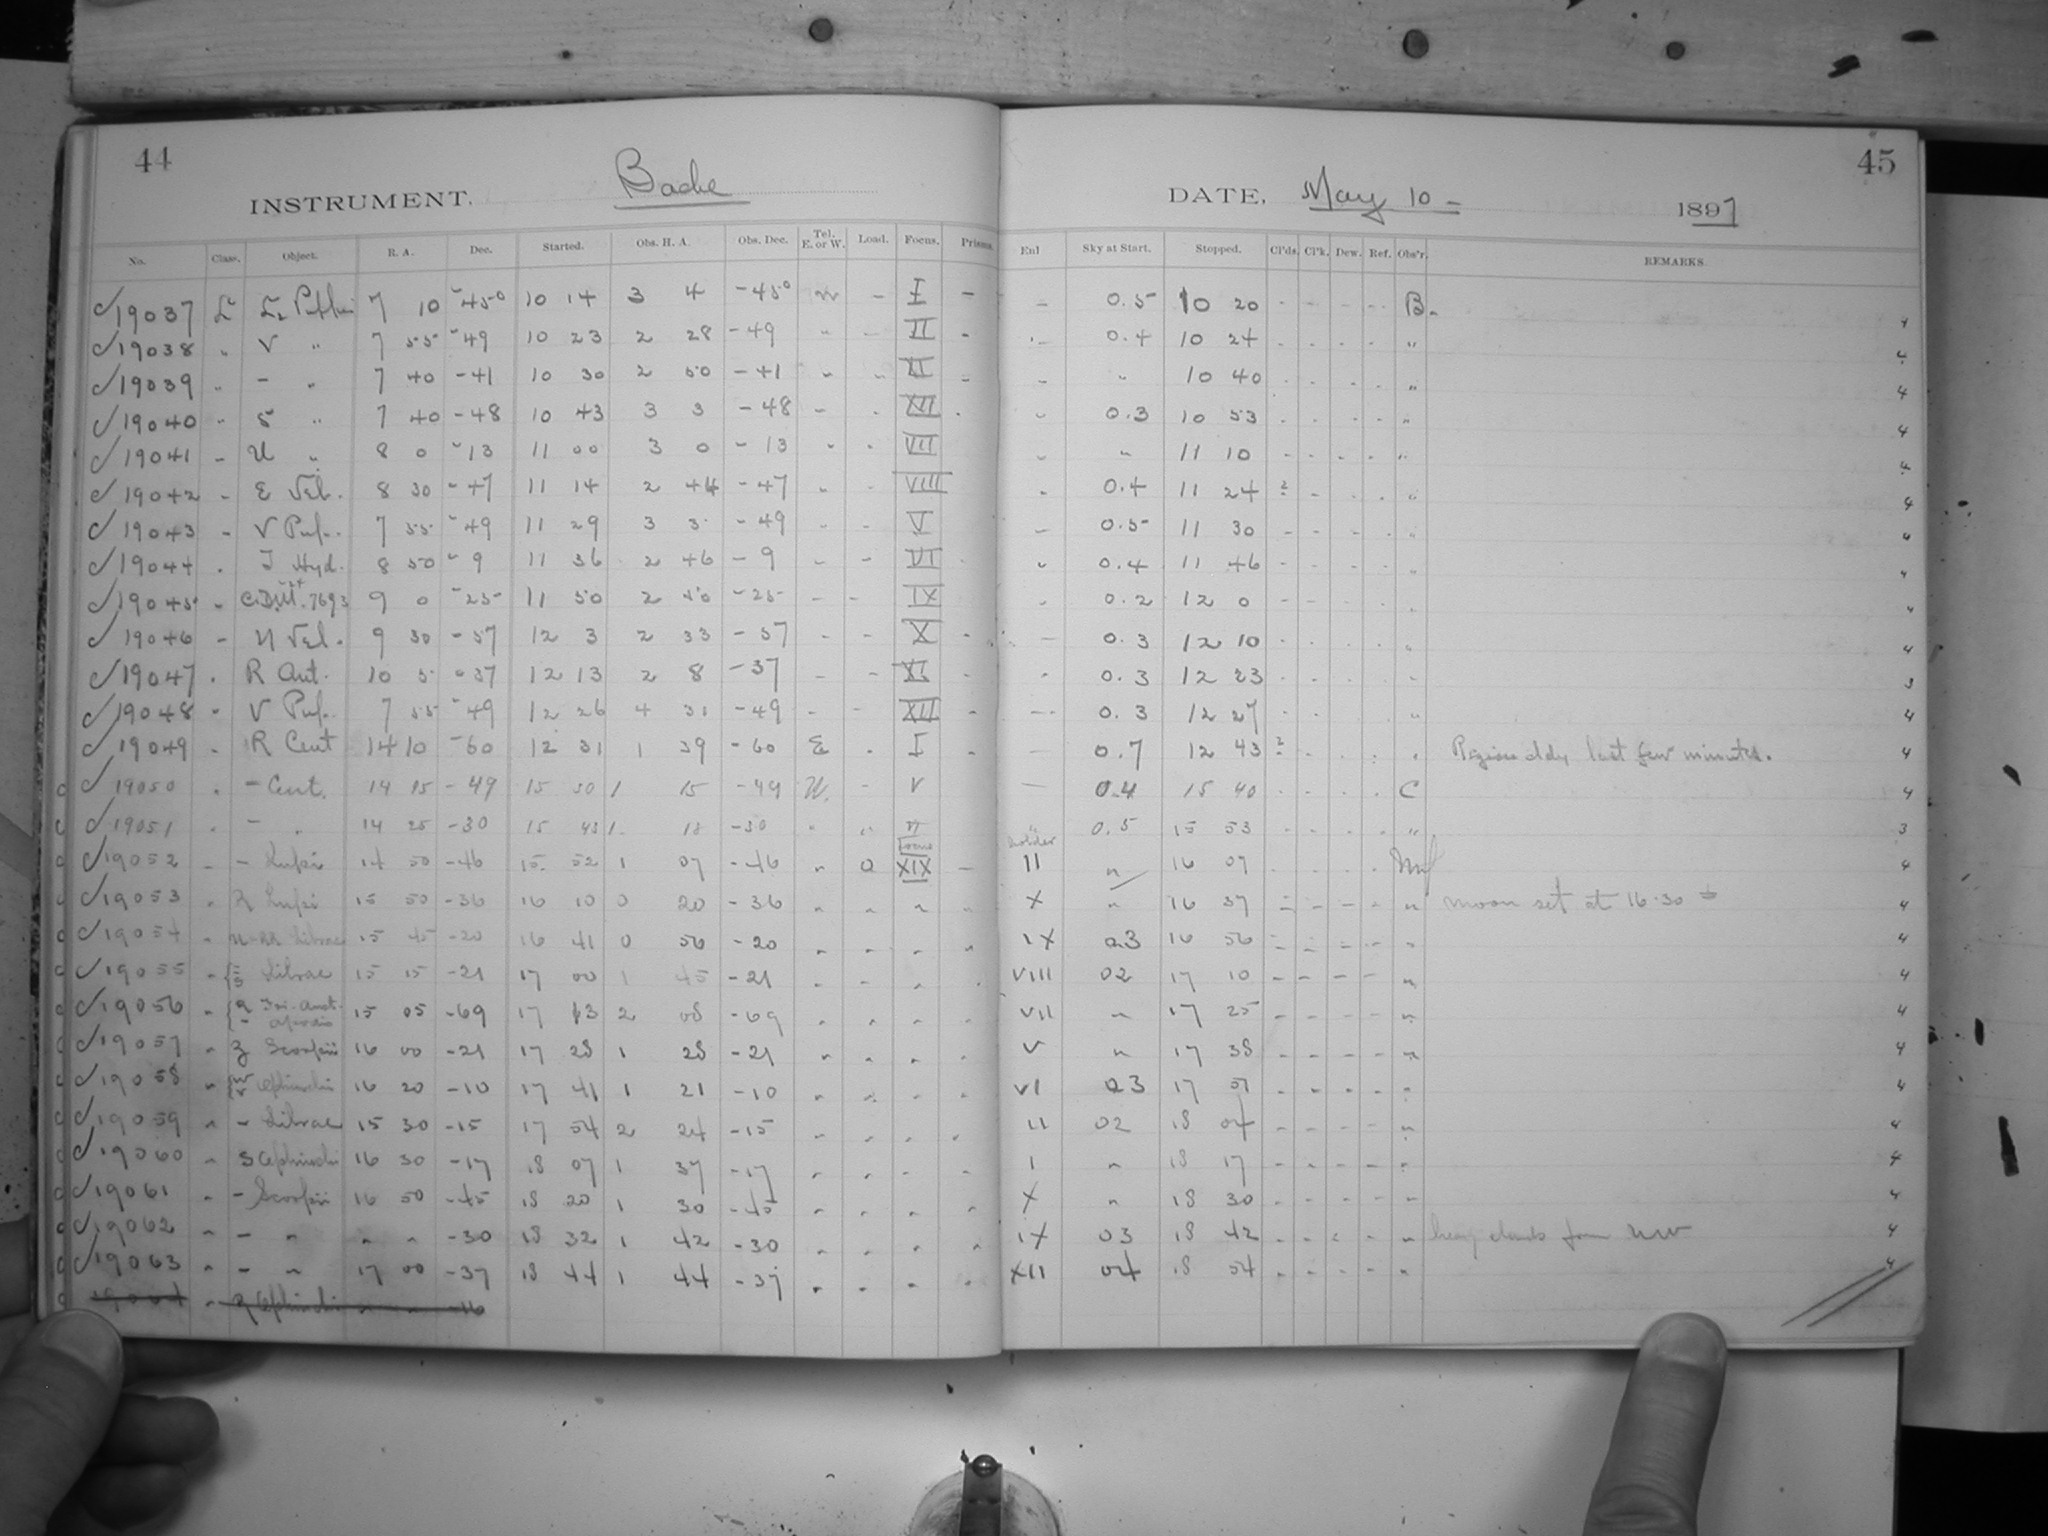 44
INSTRUMENT. Bache
No. Class. Object. R. A. Dec. Started. Obs. H. A. Obs. Dec. Tel. E. or W. Load. Focus. Prisms.
19037 7 10 -45° 10 14 3 4 -45° - I -
19038 " V " 7 55 -49 10 23 2 28 -49 " - II -
19039 " - " 7 40 -41 10 30 2 50 -41 " " -
19040 " S " 7 40 -48 10 43 3 3 -48 " " XII
19041 - U " 8 0 -13 11 00 3 0 -13 " " VII
19042 - E Vel. 8 30 -47 11 14 2 44 -47 " " VIII
19043 - V Pup. 7 55 -49 11 29 3 3 -49 " - V
19044 " T Hyd. 8 50 -9 11 36 2 46 -9 - - VI
19045 7693 9 0 -25 11 50 2 50 -25 - - IX
19046 - Vel. 9 30 -57 12 3 2 33 -57 - - X -
19047 " R Ant. 10 5 -37 12 13 2 8 -37 - - XI -
19048 " V Pup. 7 55 -49 12 26 4 31 -49 - - XII -
19049 " R Cent 14 10 -60 12 31 1 39 -60 E " I -
19050 " - Cent. 14 15 -49 15 30 1 15 -49 W. - V
19051 " - " 14 25 -30 15 43 1 18 -30 " "
Focus
19052 - - Lupi 14 50 -46 15 52 1 07 -46 " 0 XIX -
19053 " R Lupi 15 50 -36 16 10 0 20 -36 " " " "
19054 " Librae 15 45 -20 16 41 0 56 -20 " " " "
19055 " Librae 15 15 -21 17 00 1 45 -21 " " " "
19056 " Tri. Aust. 15 05 -69 17 13 2 08 -69 " " " "
19057 " Z Scorpii 16 00 -21 17 28 1 28 -21 " " " "
19058 " Ophiuchi 16 20 -10 17 41 1 21 -10 " " " "
19059 " - Librae 15 30 -15 17 54 2 24 -15 " " " "
19060 " S Ophiuchi 16 30 -17 18 07 1 37 -17 " " " "
19061 " - Scorpii 16 50 -45 18 20 1 30 -45 " " " "
19062 " - " " " -30 18 32 1 42 -30 " " " "
19063 " - " 17 00 -37 18 44 1 44 -37 " " " "
19064 " R Ophiuchi " " -16
45
DATE, May 10 - 1897
Enl Sky at Start. Stopped. Cl'ds. Cl'k. Dew. Ref. Obs'r. REMARKS.
- 0.5 10 20 - - - - B. 4
- 0.4 10 24 - - - - " 4
" " 10 40 - - - - " 4
" 0.3 10 53 - - - - " 4
" " 11 10 - - - - " 4
" 0.4 11 24 2 - - - " 4
- 0.5 11 30 - - - - " 4
" 0.4 11 46 - - - - " 4
" 0.2 12 0 - - - - " 4
- 0.3 12 10 - - - - " 4
" 0.3 12 23 - - - - " 3
- 0.3 12 27 - - " 4
- 0.7 12 43 2 - - - " Region last few minutes. 4
- 0.4 15 40 - - - - C 4
" 0.5 15 53 - - - - " 3
Holder
II " 16 07 - - - - 4
X " 16 37 - - - - " moon set at 16.30 ± 4
IX 03 16 56 - - - - " 4
VIII 02 17 10 - - - - " 4
VII " 17 25 - - - - " 4
V " 17 38 - - - - " 4
VI 03 17 51 - - - - " 4
II 02 18 04 - - - - " 4
I " 18 17 - - - - " 4
X " 18 30 - - - - " 4
IX 03 18 42 - - - - " heavy clouds from NW 4
XII 04 18 54 - - - - " 4